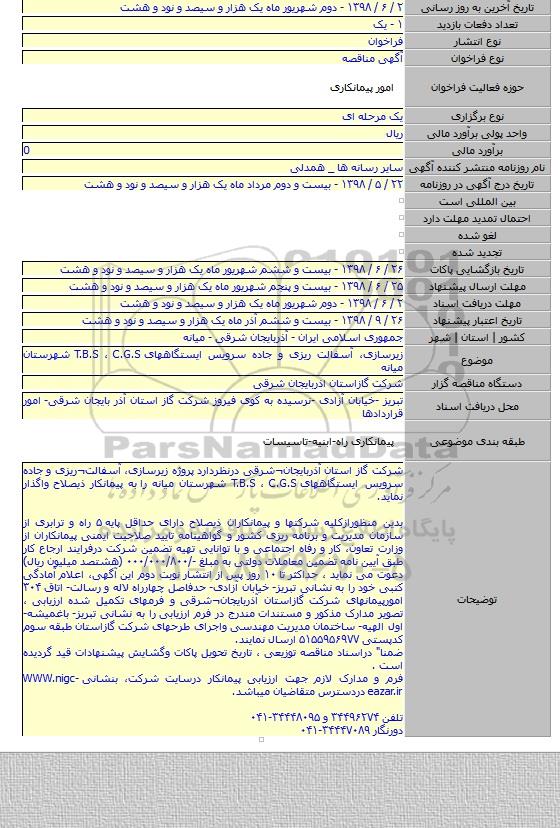 تاریخ آخرین به روز رسانی ۲ / ۶ / ۱۳۹۸ - دوم شهریور ماه یک هزار و سیصد و نود و هشت
تعداد دفعات بازدید ۱ - یک
نوع انتشار فراخوان
نوع فراخوان آگهی مناقصه
حوزه فعالیت فراخوان امور پیمانکاری
نوع برگزاری یک مرحله ای
واحد پولی برآورد مالی ریال
برآورد مالی 0
نام روزنامه منتشر کننده آگهی سایر رسانه ها _ همدلی
تاریخ درج آگهی در روزنامه ۲۲ / ۵ / ۱۳۹۸ - بیست و دوم مرداد ماه یک هزار و سیصد و نود و هشت
بین المللی است
احتمال تمدید مهلت دارد
لغو شده
تجدید شده
تاریخ بازگشایی پاکات ۲۶ / ۶ / ۱۳۹۸ - بیست و ششم شهریور ماه یک هزار و سیصد و نود و هشت
مهلت ارسال پیشنهاد ۲۵ / ۶ / ۱۳۹۸ - بیست و پنجم شهریور ماه یک هزار و سیصد و نود و هشت
مهلت دریافت اسناد ۲ / ۶ / ۱۳۹۸ - دوم شهریور ماه یک هزار و سیصد و نود و هشت
تاریخ اعتبار پیشنهاد ۲۶ / ۹ / ۱۳۹۸ - بیست و ششم آذر ماه یک هزار و سیصد و نود و هشت
کشور | استان | شهر جمهوری اسلامی ایران - آذربایجان شرقی - میانه
موضوع زیرسازی، آسفالت ریزی و جاده سرویس ایستگاههای T.B.S ، C.G.S شهرستان
میانه
دستگاه مناقصه گزار شرکت گازاستان اذربایجان شرقی
محل دریافت اسناد تبریز -خیابان آزادی -نرسیده به کوی فیروز شرکت گاز استان آذر بایجان شرقی- امور
قراردادها
طبقه بندی موضوعی پیمانکاری راه-ابنیه-تاسیسات
ParsNamadData
توضیحات
شرکت گاز استان آذربایجان¬شرقی درنظردارد پروژه زیرسازی، آسفالت¬ریزی و جاده
سرویس ایستگاههای T.B.S ، C.G.S شهرستان میانه را به پیمانکار ذیصلاح واگذار
نماید.
بدین منظورازکلیه شرکتها و پیمانکاران ذیصلاح دارای حداقل پایه ۵ راه و ترابری از
سازمان مدیریت و برنامه ریزی کشور و گواهینامه تایید صلاحیت ایمنی پیمانکاران از
وزارت تعاون، کار و رفاه اجتماعی و با توانایی تهیه تضمین شرکت درفرایند ارجاع کار
طبق آیین نامه تضمین معاملات دولتی به مبلغ -/۰۰۰/۰۰۰/۸۰۰ (هشتصد میلیون ریال)
دعوت می نماید ، حداکثر تا ۱۰ روز پس از انتشار نوبت دوم این آگهی، اعلام آمادگی
کتبی خود را به نشانی تبریز- خیابان آزادی- حدفاصل چهارراه لاله و رسالت- اتاق ۳۰۴
امورپیمانهای شرکت گازاستان آذربایجان¬شرقی و فرمهای تکمیل شده ارزیابی ،
تصویر مدارک مذکور و مستندات مندرج در فرم ارزیابی را به نشانی تبریز- باغمیشه-
اول الهیه- ساختمان مدیریت مهندسی واجرای طرحهای شرکت گازاستان طبقه سوم
کدپستی ۵۱۵۵۹۵۶۹۷۷ ارسال نمایند.
ضمنا" دراسناد مناقصه توزیعی ، تاریخ تحویل پاکات وگشایش پیشنهادات قید گردیده
است .
فرم و مدارک لازم جهت ارزیابی پیمانکار درسایت شرکت، بنشانی WWW.nigc-
eazar.ir دردسترس متقاضیان میباشد.
تلفن ۳۴۴۹۶۲۷۴ و ۳۴۴۴۸۰۹۵-۰۴۱
دورنگار ۳۴۴۴۷۰۸۹-۰۴۱